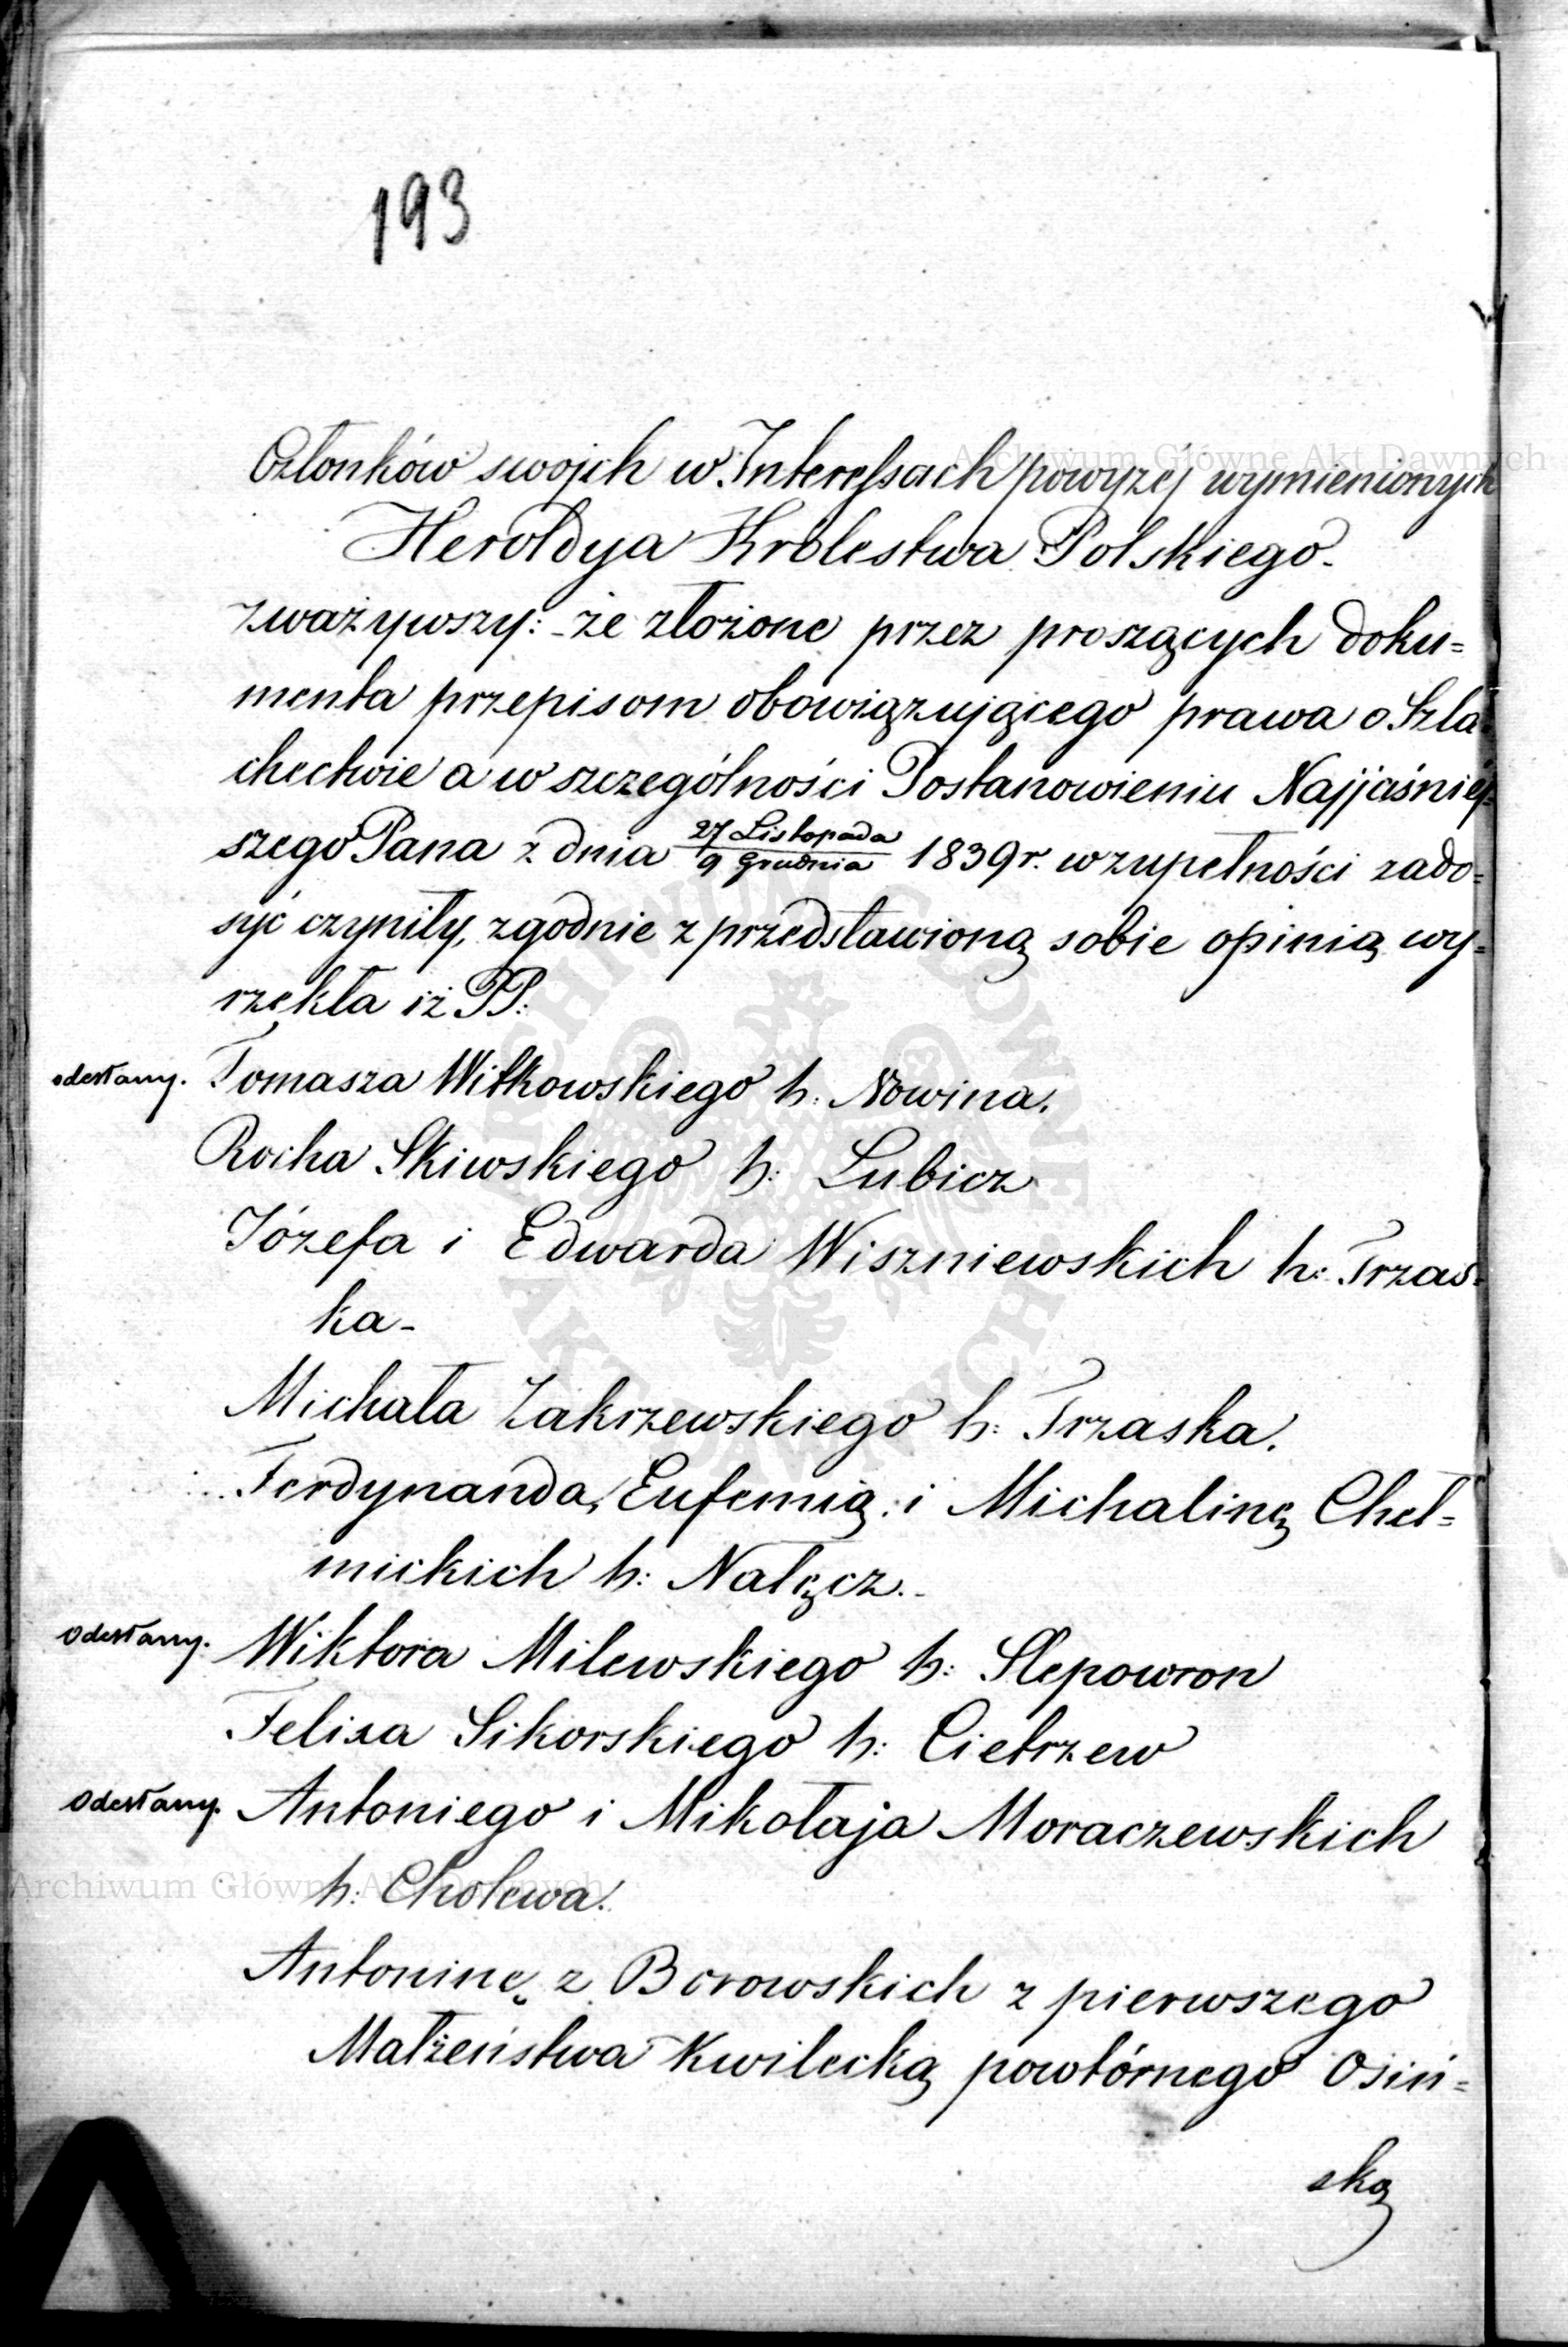 193
Członków swojch w Interessach powyżej wymienionych
Heroldya Królestwa Polskiego.
zważywszy: - że złożone przez proszących doku=
menta przepisom obowiązującego prawa o Szla=
chectwie a w szczególności Postanowieniu Najjaśniej=
szego Pana z dnia 27 Listopada / 9 Grudnia 1839 r. w zupełności zado=
syć czyniły, zgodnie z przedstawioną sobie opinią wy=
rzekła iż PP:
odesłany. Tomasza Witkowskiego h: Nowina.
Rocha Skiwskiego h: Lubicz
Józefa i Edwarda Wiszniewskich h: Trzas=
ka-
Michała Zakrzewskiego h: Trzaska.
Ferdynanda, Eufemią i Michalinę Cheł=
mickich h: Nałęcz.-
odesłany. Wiktora Milewskiego h: Slepowron
Felixa Sikorskiego h: Cietrzew
odesłany. Antoniego i Mikołaja Moraczewskich
h: Cholewa.
Antoninę z Borowskich z pierwszego
Małżeństwa Kwilecką powtórnego Osiń=
ską
Archiwum Główne Akt Dawnych
Archiwum Główne Akt Dawnych
ARCHIWUM GŁÓWNE
AKT DAWNYCH